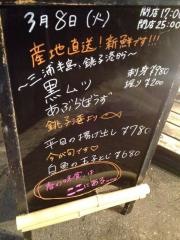 3月8日(火)
開店 17:00
閉店 25:00
産地直送!新鮮です!!!
~三浦半島、銚子港から~
黒ムツ
刺身 ¥980
あぶらぼうず
銚子港より
平目の揚げ出し ¥780
今が旬です♡
白魚の玉子とじ ¥680
春の味覚は
ここにある